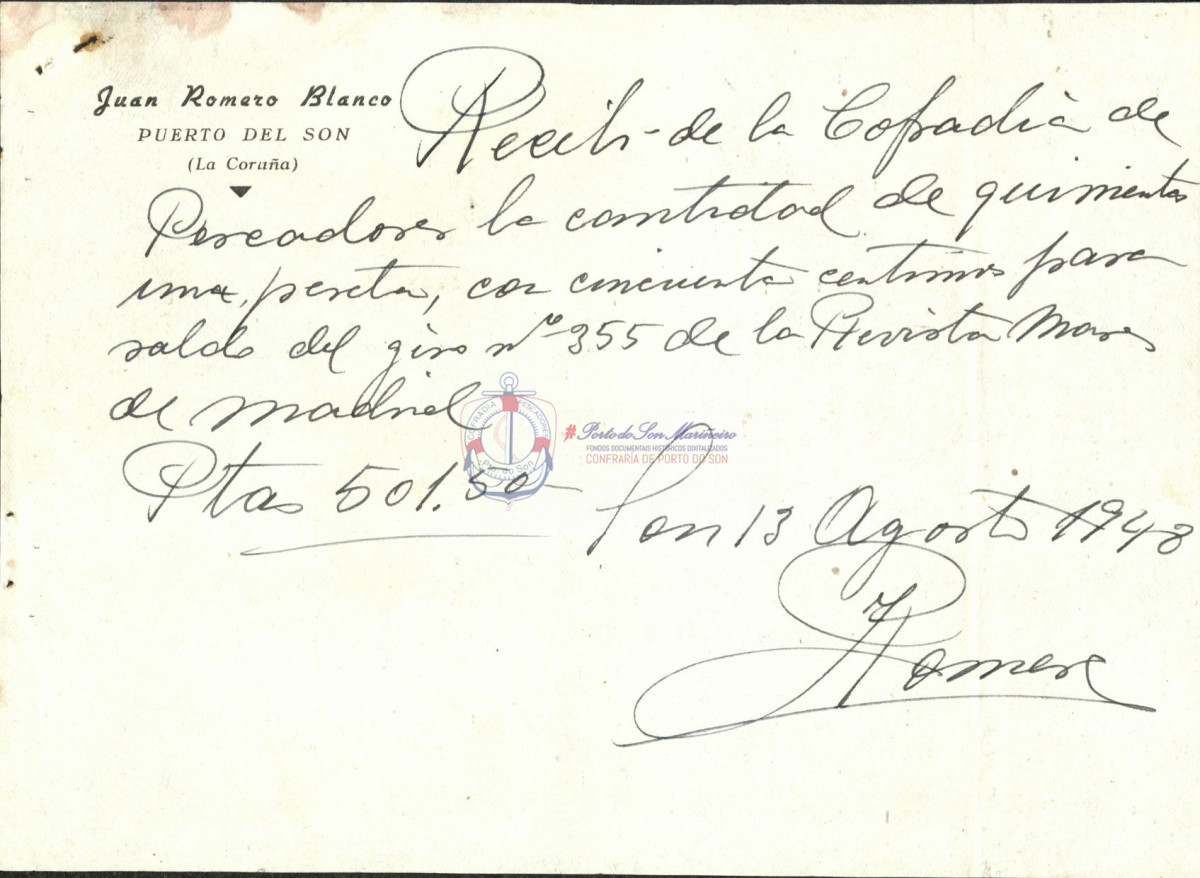 Juan Romero Blanco
PUERTO DEL SON
(La Coruña)
Recibí de la Cofradía de
Pescadores la cantidad de quinientas
una peseta, con cincuenta centimos para
saldo del giro nº 355 de la Revista Mares
de Madrid
Ptas 501.50
Son 13 Agosto 1948
Romero
COFRADIA PESCADORES
Pto. do Son
#Porto do Son Mariñeiro
FONDOS DOCUMENTAIS HISTÓRICOS DIXITALIZADOS
CONFRARÍA DE PORTO DO SON